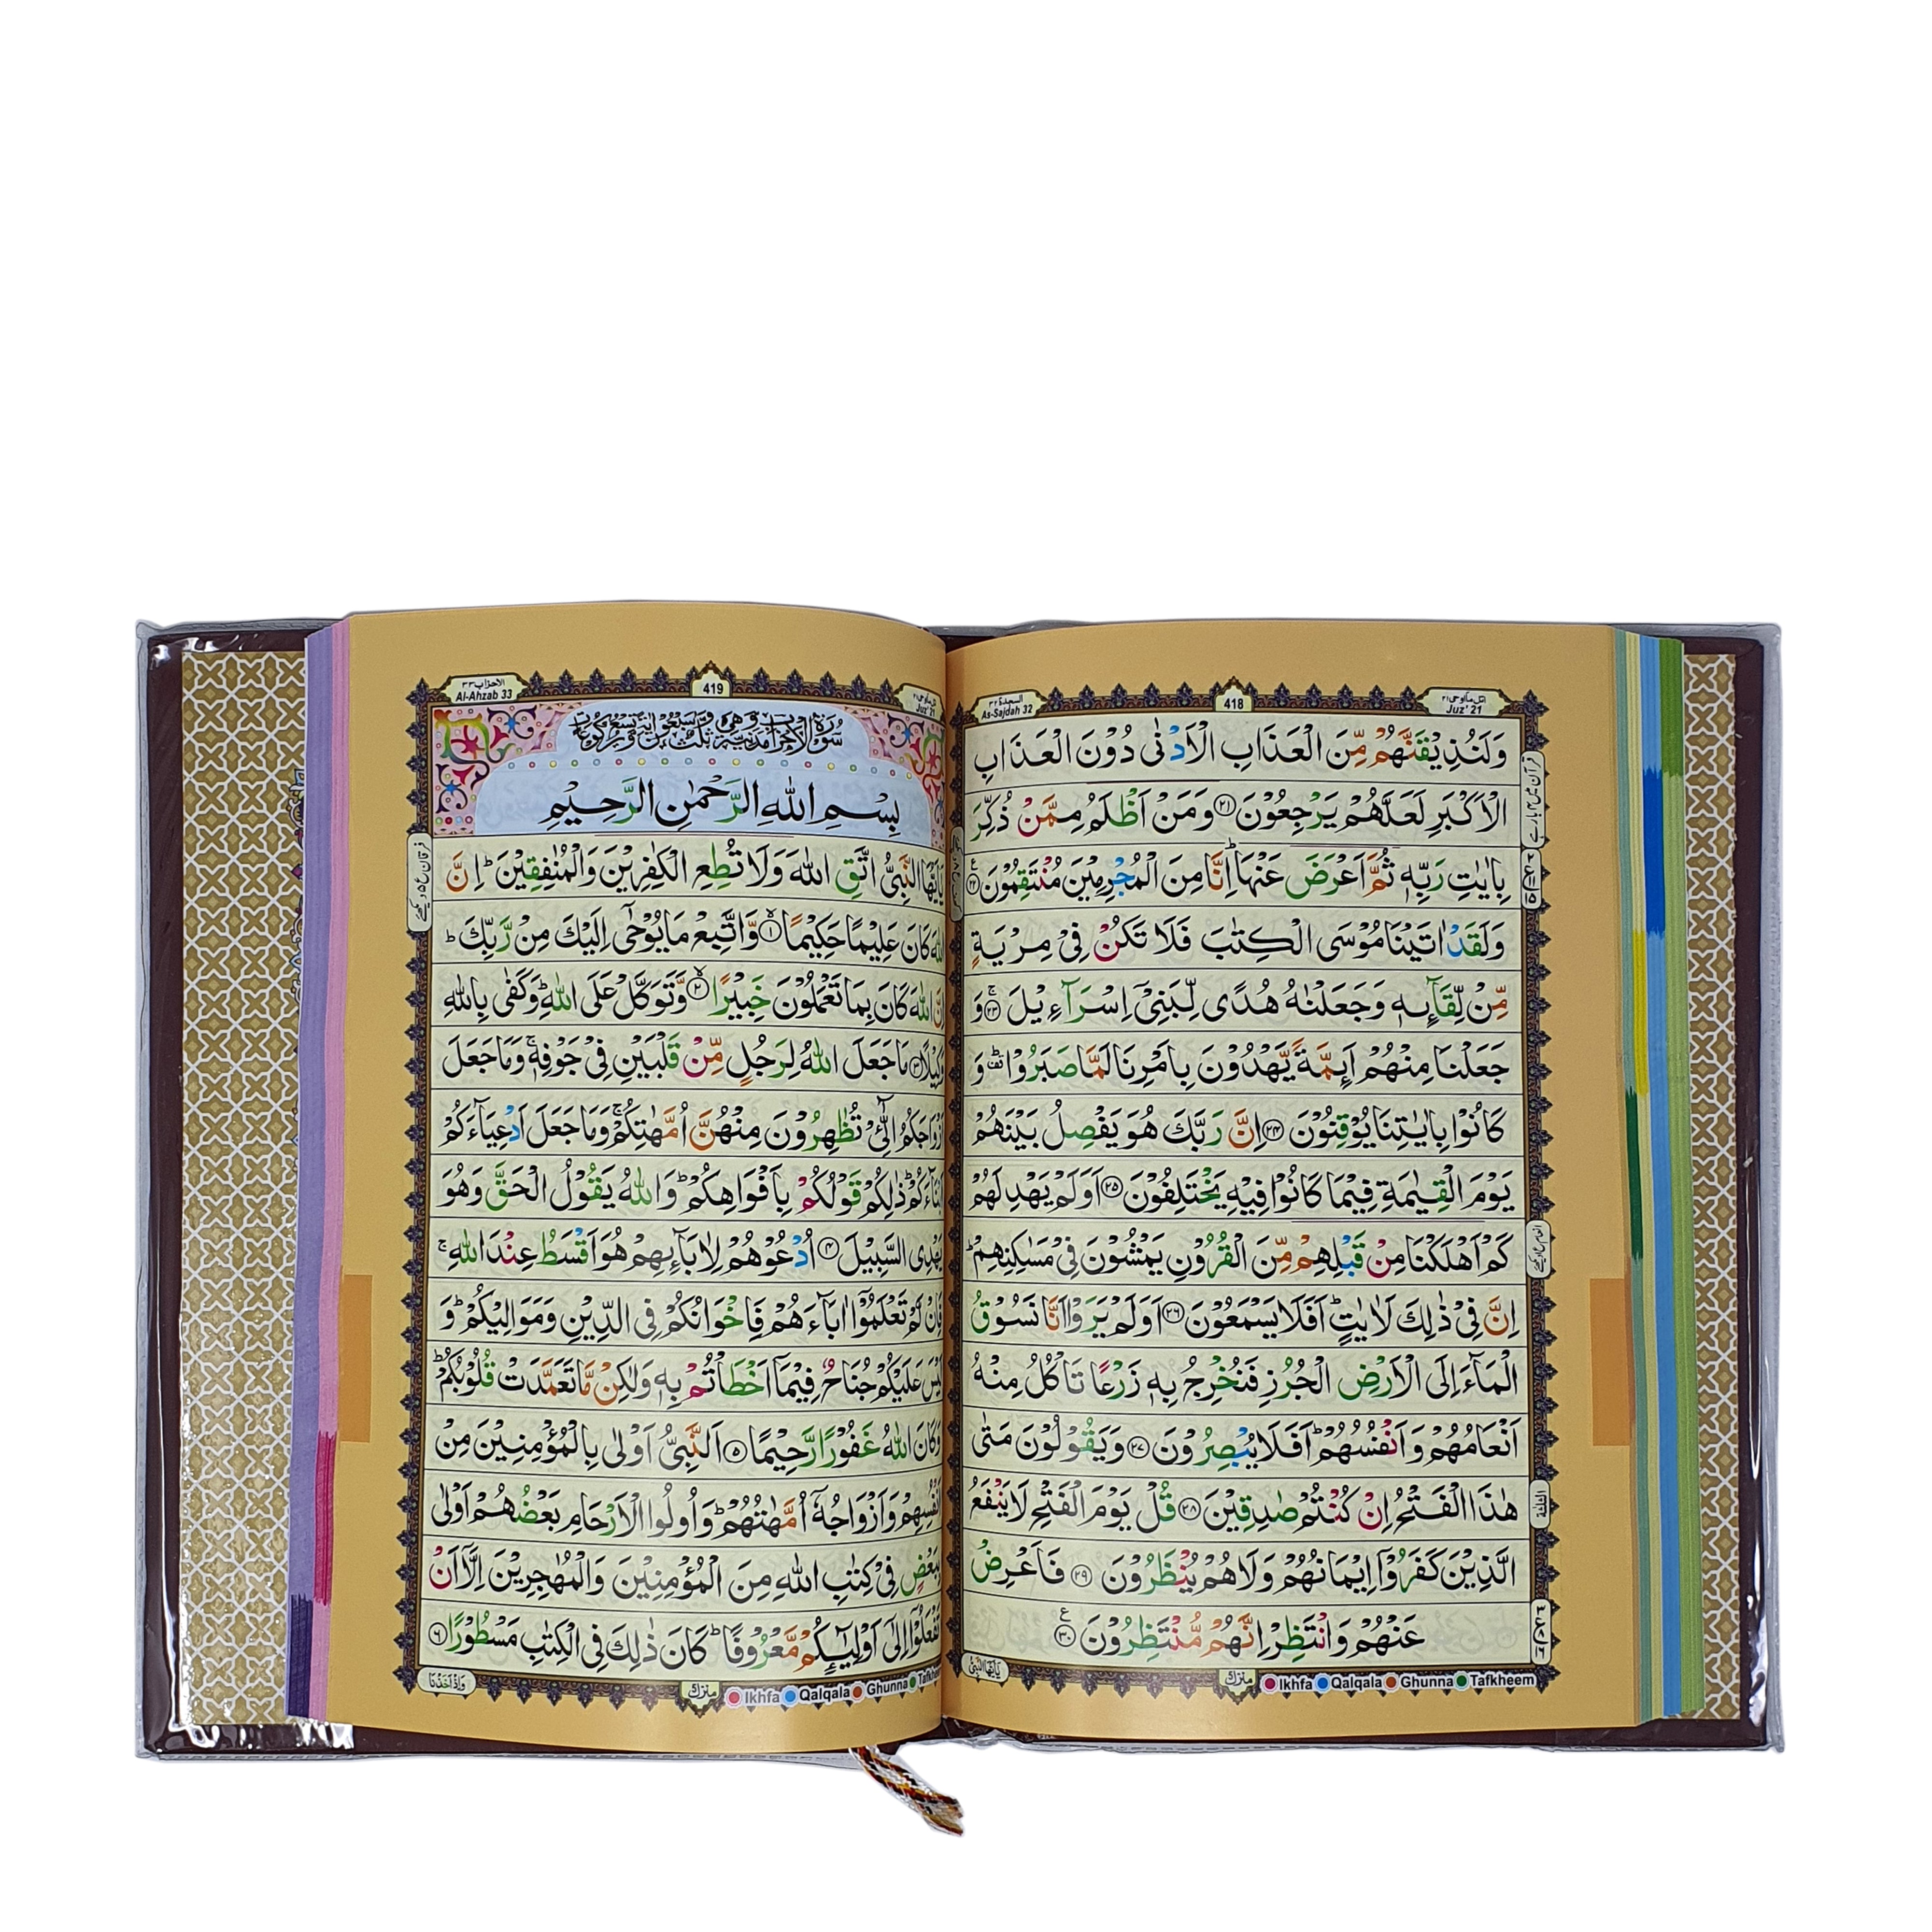 السجدة ٣٢
As-Sajdah 32
418
اتل ما اوحی ٢١
Juz' 21
وَلَنُذِيْقَنَّهُمْ مِّنَ الْعَذَابِ الْاَدْنٰى دُوْنَ الْعَذَابِ
الْاَكْبَرِ لَعَلَّهُمْ يَرْجِعُوْنَ ﴿٢١﴾ وَمَنْ اَظْلَمُ مِمَّنْ ذُكِّرَ
بِاٰيٰتِ رَبِّهٖ ثُمَّ اَعْرَضَ عَنْهَا ؕ اِنَّا مِنَ الْمُجْرِمِيْنَ مُنْتَقِمُوْنَ ﴿٢٢﴾
وَلَقَدْ اٰتَيْنَا مُوْسَى الْكِتٰبَ فَلَا تَكُنْ فِيْ مِرْيَةٍ
مِّنْ لِّقَآئِهٖ وَجَعَلْنٰهُ هُدًى لِّبَنِيْٓ اِسْرَآءِيْلَ ﴿٢٣﴾ۚ وَ
جَعَلْنَا مِنْهُمْ اَئِمَّةً يَّهْدُوْنَ بِاَمْرِنَا لَمَّا صَبَرُوْا ؕ وَ
كَانُوْا بِاٰيٰتِنَا يُوْقِنُوْنَ ﴿٢٤﴾ اِنَّ رَبَّكَ هُوَ يَفْصِلُ بَيْنَهُمْ
يَوْمَ الْقِيٰمَةِ فِيْمَا كَانُوْا فِيْهِ يَخْتَلِفُوْنَ ﴿٢٥﴾ اَوَلَمْ يَهْدِ لَهُمْ
كَمْ اَهْلَكْنَا مِنْ قَبْلِهِمْ مِّنَ الْقُرُوْنِ يَمْشُوْنَ فِيْ مَسٰكِنِهِمْ ؕ
اِنَّ فِيْ ذٰلِكَ لَاٰيٰتٍ ؕ اَفَلَا يَسْمَعُوْنَ ﴿٢٦﴾ اَوَلَمْ يَرَوْا اَنَّا نَسُوْقُ
الْمَآءَ اِلَى الْاَرْضِ الْجُرُزِ فَنُخْرِجُ بِهٖ زَرْعًا تَاْكُلُ مِنْهُ
اَنْعَامُهُمْ وَاَنْفُسُهُمْ ؕ اَفَلَا يُبْصِرُوْنَ ﴿٢٧﴾ وَيَقُوْلُوْنَ مَتٰى
هٰذَا الْفَتْحُ اِنْ كُنْتُمْ صٰدِقِيْنَ ﴿٢٨﴾ قُلْ يَوْمَ الْفَتْحِ لَا يَنْفَعُ
الَّذِيْنَ كَفَرُوْٓا اِيْمَانُهُمْ وَلَا هُمْ يُنْظَرُوْنَ ﴿٢٩﴾ فَاَعْرِضْ
عَنْهُمْ وَانْتَظِرْ اِنَّهُمْ مُّنْتَظِرُوْنَ ﴿٣٠﴾
يٰٓاَيُّهَا النَّبِيُّ
Ikhfa Qalqala Ghunna Tafkheem
الاحزاب ٣٣
Al-Ahzab 33
419
Juz' 21
بِسْمِ اللّٰهِ الرَّحْمٰنِ الرَّحِيْمِ
يٰٓاَيُّهَا النَّبِيُّ اتَّقِ اللّٰهَ وَلَا تُطِعِ الْكٰفِرِيْنَ وَالْمُنٰفِقِيْنَ ؕ اِنَّ
اللّٰهَ كَانَ عَلِيْمًا حَكِيْمًا ﴿١﴾ۙ وَّاتَّبِعْ مَا يُوْحٰٓى اِلَيْكَ مِنْ رَّبِّكَ ؕ
اِنَّ اللّٰهَ كَانَ بِمَا تَعْمَلُوْنَ خَبِيْرًا ﴿٢﴾ۙ وَّتَوَكَّلْ عَلَى اللّٰهِ ؕ وَكَفٰى بِاللّٰهِ
وَكِيْلًا ﴿٣﴾ مَا جَعَلَ اللّٰهُ لِرَجُلٍ مِّنْ قَلْبَيْنِ فِيْ جَوْفِهٖ ۚ وَمَا جَعَلَ
اَزْوَاجَكُمُ الّٰٓـِٔيْ تُظٰهِرُوْنَ مِنْهُنَّ اُمَّهٰتِكُمْ ۚ وَمَا جَعَلَ اَدْعِيَآءَكُمْ
اَبْنَآءَكُمْ ؕ ذٰلِكُمْ قَوْلُكُمْ بِاَفْوَاهِكُمْ ؕ وَاللّٰهُ يَقُوْلُ الْحَقَّ وَهُوَ
يَهْدِى السَّبِيْلَ ﴿٤﴾ اُدْعُوْهُمْ لِاٰبَآئِهِمْ هُوَ اَقْسَطُ عِنْدَ اللّٰهِ ۚ
فَاِنْ لَّمْ تَعْلَمُوْٓا اٰبَآءَهُمْ فَاِخْوَانُكُمْ فِى الدِّيْنِ وَمَوَالِيْكُمْ ؕ وَ
لَيْسَ عَلَيْكُمْ جُنَاحٌ فِيْمَآ اَخْطَاْتُمْ بِهٖ وَلٰكِنْ مَّا تَعَمَّدَتْ قُلُوْبُكُمْ ؕ
وَكَانَ اللّٰهُ غَفُوْرًا رَّحِيْمًا ﴿٥﴾ اَلنَّبِيُّ اَوْلٰى بِالْمُؤْمِنِيْنَ مِنْ
اَنْفُسِهِمْ وَاَزْوَاجُهٗٓ اُمَّهٰتُهُمْ ؕ وَاُولُوا الْاَرْحَامِ بَعْضُهُمْ اَوْلٰى
بِبَعْضٍ فِيْ كِتٰبِ اللّٰهِ مِنَ الْمُؤْمِنِيْنَ وَالْمُهٰجِرِيْنَ اِلَّآ اَنْ
تَفْعَلُوْٓا اِلٰٓى اَوْلِيٰٓئِكُمْ مَّعْرُوْفًا ؕ كَانَ ذٰلِكَ فِى الْكِتٰبِ مَسْطُوْرًا ﴿٦﴾
وَاِذْ اَخَذْنَا
Ikhfa Qalqala Ghunna